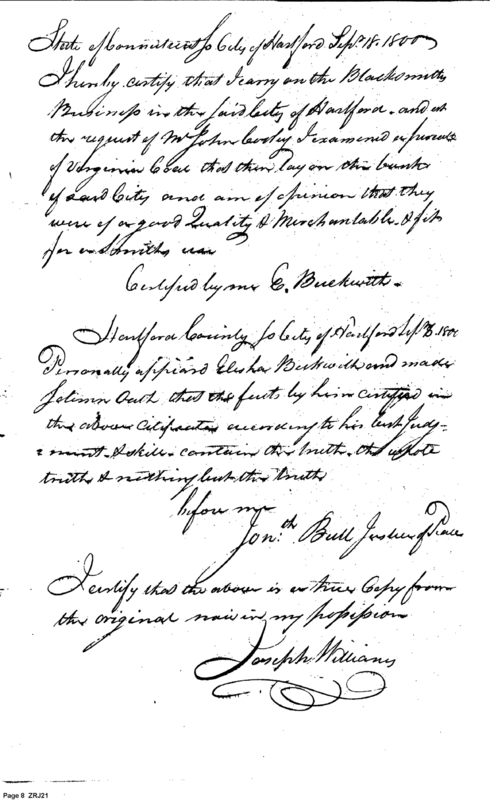 State of Connecticut Ss City of Hartford Sept. 18. 1800
I hereby certify that I carry on the Blacksmiths
Business in the said City of Hartford. and at
the request of Mr. John Cooley I examined a parcel
of Virginia Coal that then lay on the bank
of said City and am of opinion that they
were of a good Quality & Merchantable. & fit
for a Smiths use
Certified by me E. Beckwith.
Hartford County Ss City of Hartford Sept. 18. 1800
Personally appeard Elisha Beckwith and made
Solemn Oath that the facts by him certified in
the above Certificate according to his best Judg-
=ment. & skill. contain the truth. the whole
truth & nothing but the truth
before me
Jon.th Bull Justice of Peace
I certify that the above is a true Copy from
the original now in my possession
Joseph Williams
Page 8 ZRJ21